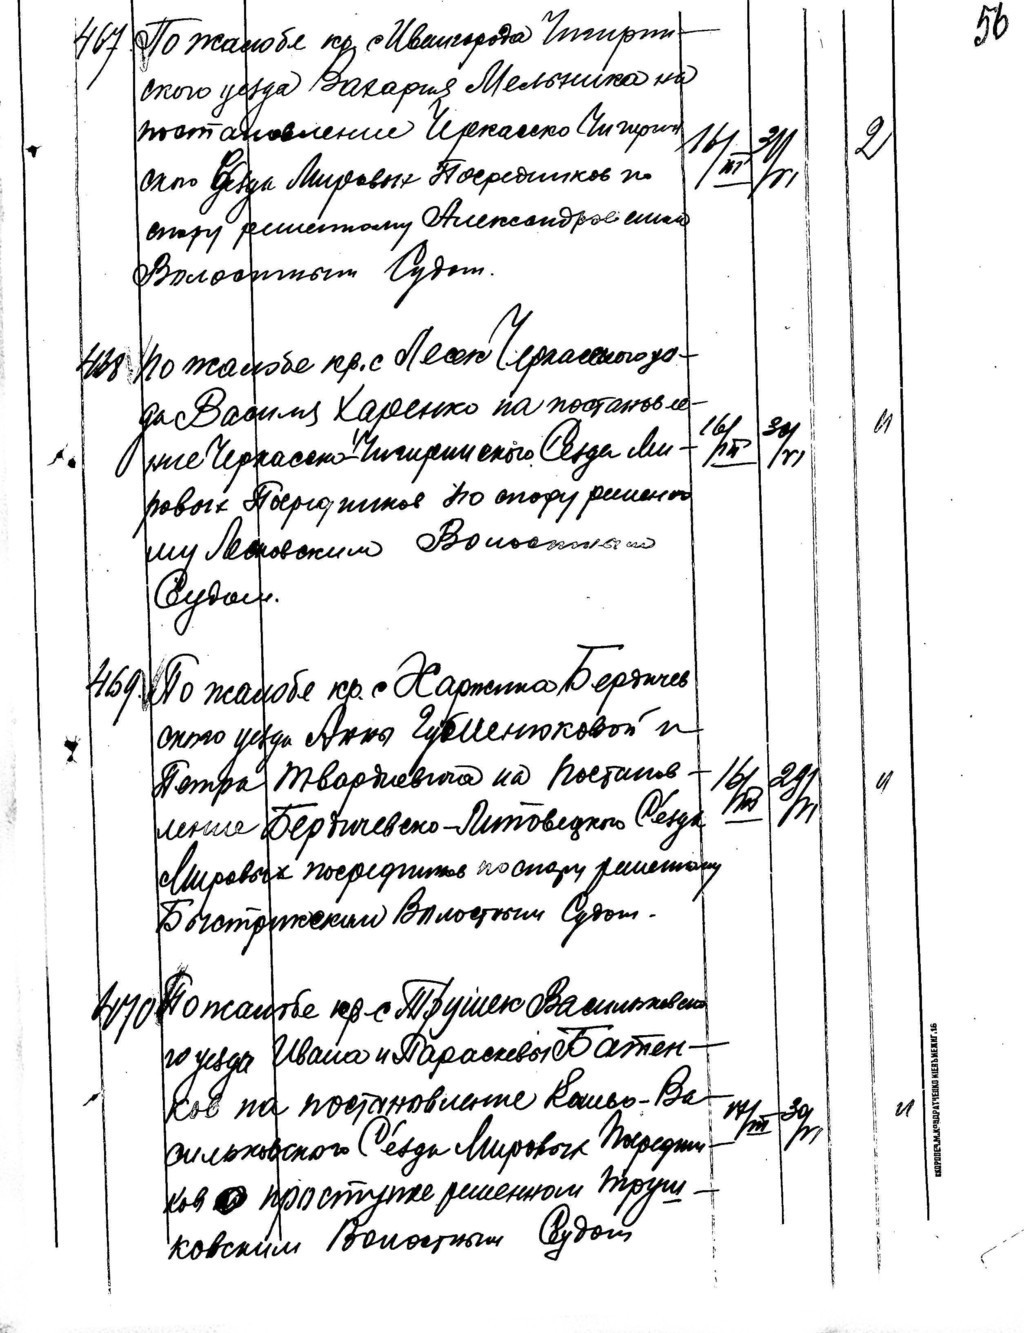 56
467. По жалобе кр. с Ивангорода Чигирин-
ского уезда Захария Мельника на
постановление Черкасско Чигирин
ского Съезда Мировых Посредников по
спору решенному Александровским
Волостным Судом.
16/III 30/VI 2
468 По жалобе кр. с Лесок Черкасского уез-
да Василия Харенко на постановле-
ние Черкасско-Чигиринского Съезда Ми-
ровых Посредников по спору решенно
му Лесковским Волостным
Судом.
16/III 30/VI "
469. По жалобе кр. с Хажина Бердичев
ского уезда Анны и
Петра на постанов-
ление Бердичевско-Липовецкого Съезда
Мировых посредников по спору решенному
Быстрикским Волостным Судом.
16/III 29/VI "
470 По жалобе кр. с Трушек Васильковско
го уезда Ивана и Параскевы Батен-
ков на постановление Киево-Ва-
сильковского Съезда Мировых Посредни-
ков о проступке решенном Труш-
ковским Волостным Судом
17/III 30/VI "